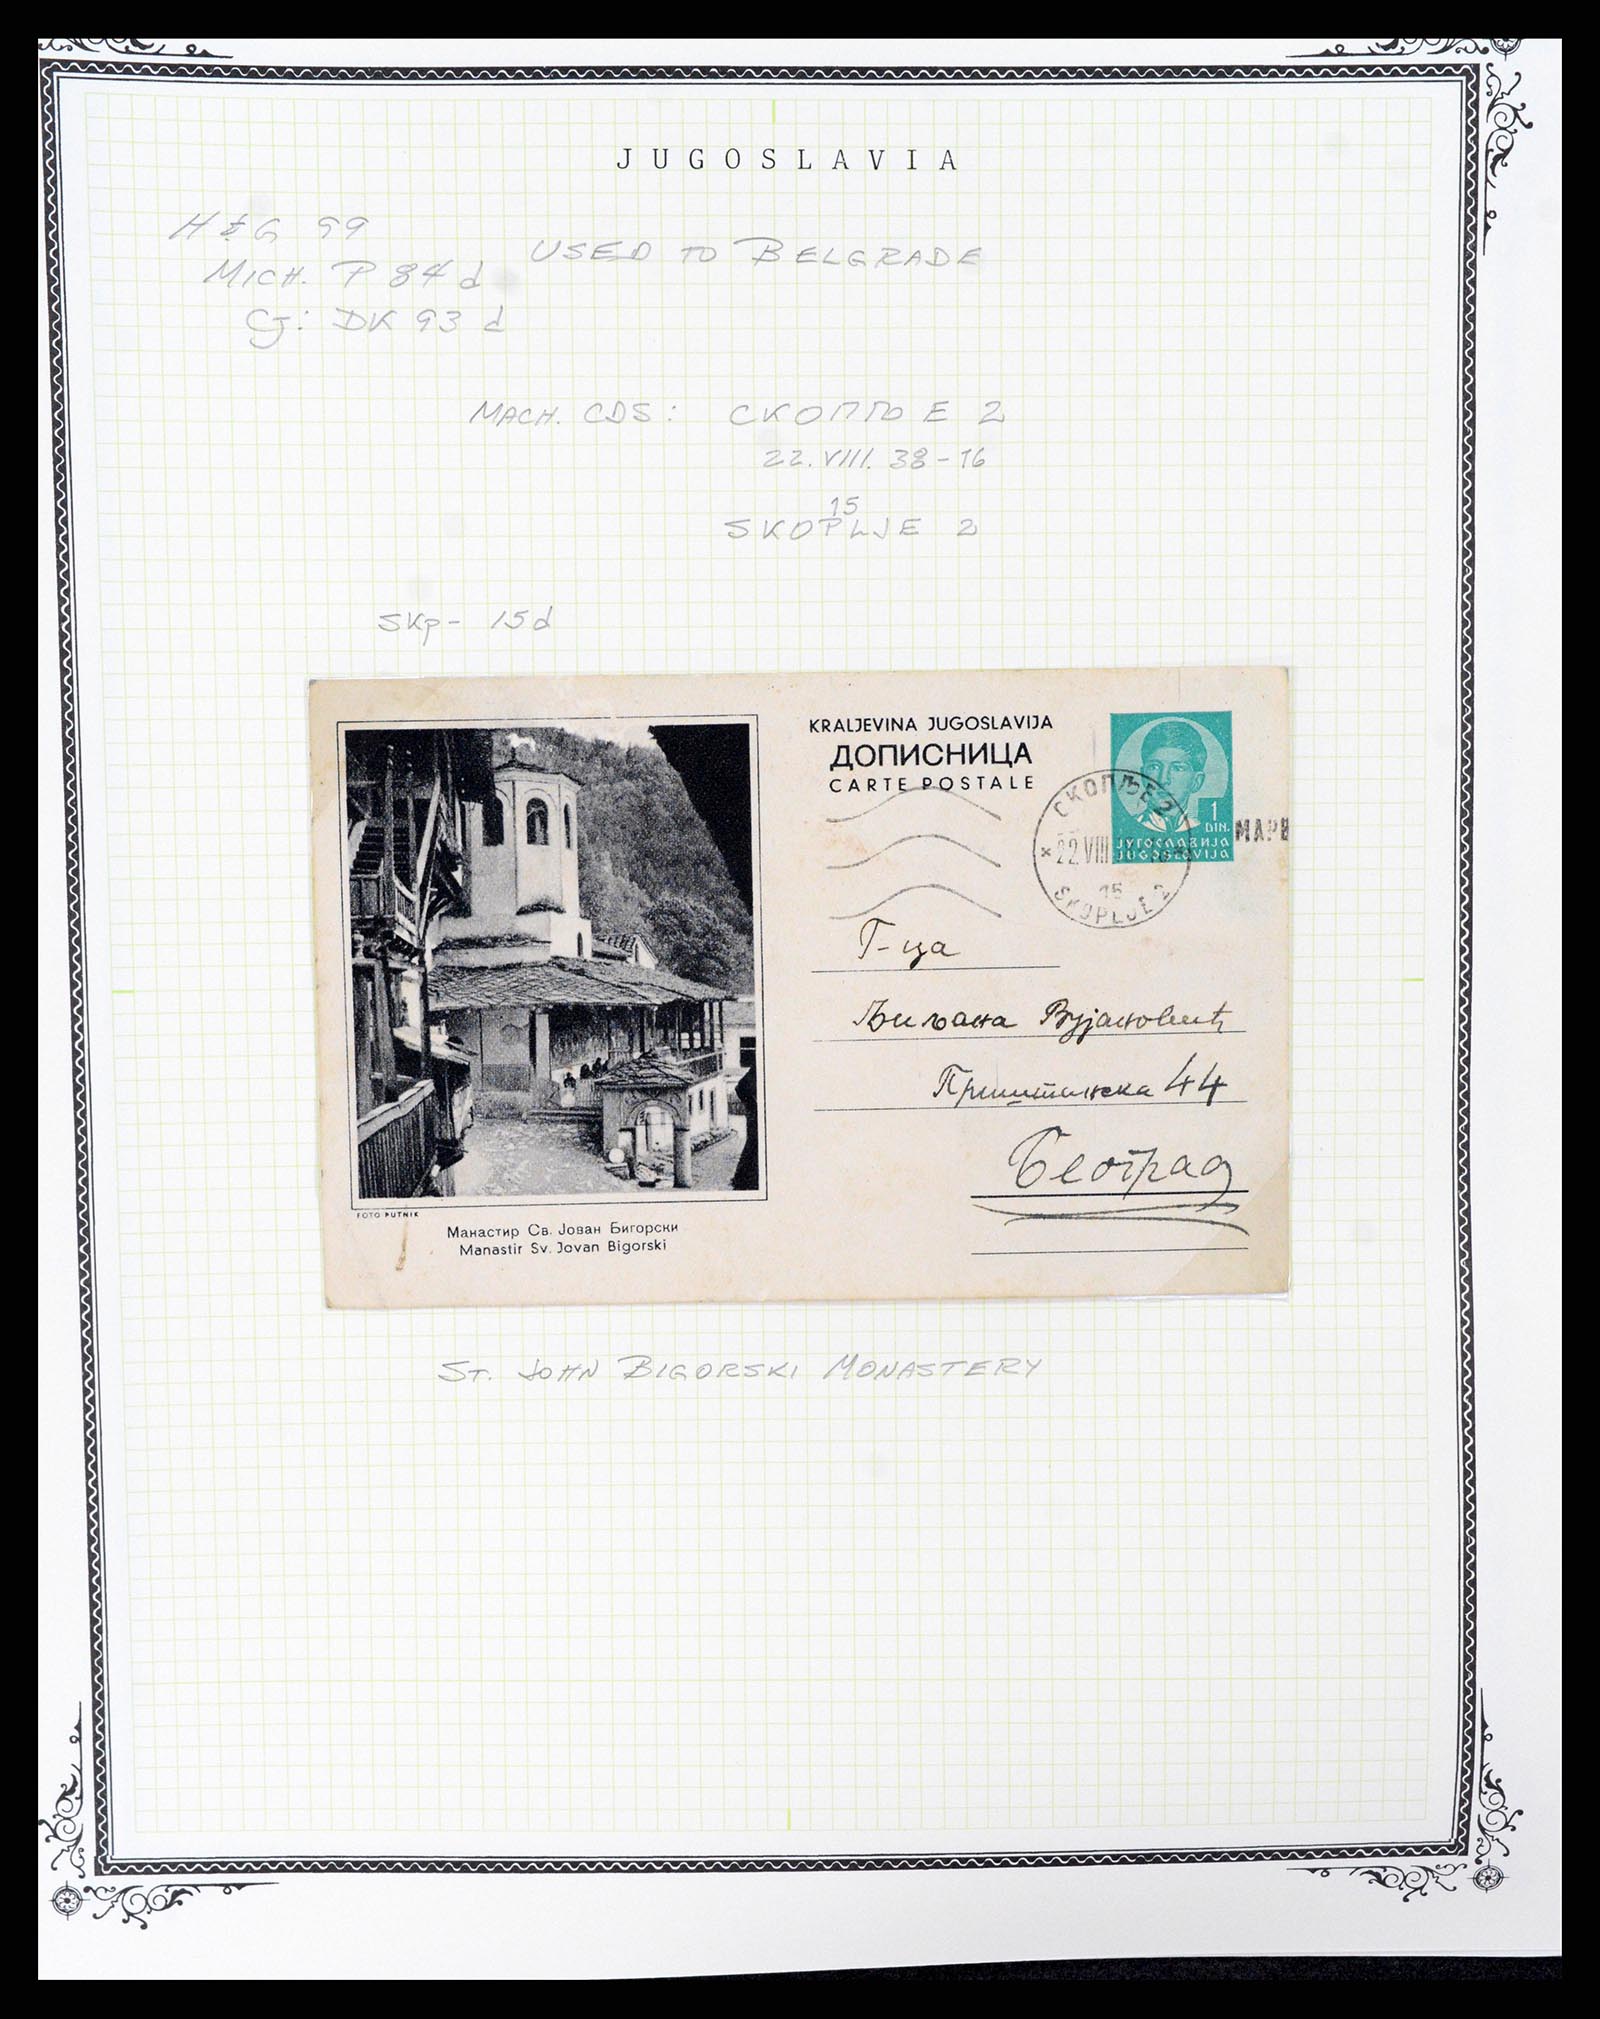 JUGOSLAVIA
H & G 99
MICH. P 84 d
USED TO BELGRADE
CJ: DK 93 d
MACH. CDS: СКОПЉЕ 2
22.VIII.38-16
15
SKOPLJE 2
SKp- 15d
KRALJEVINA JUGOSLAVIJA
ДОПИСНИЦА
CARTE POSTALE
1
DIN.
ЈУГОСЛАВИЈА
JUGOSLAVIJA
СКОПЉЕ 2
22.VIII
15
SKOPLJE 2
МАРВ
Г-ца
Љиљана Вујановић
Приштинска 44
Београд
FOTO PUTNIK
Манастир Св. Јован Бигорски
Manastir Sv. Jovan Bigorski
ST. JOHN BIGORSKI MONASTERY